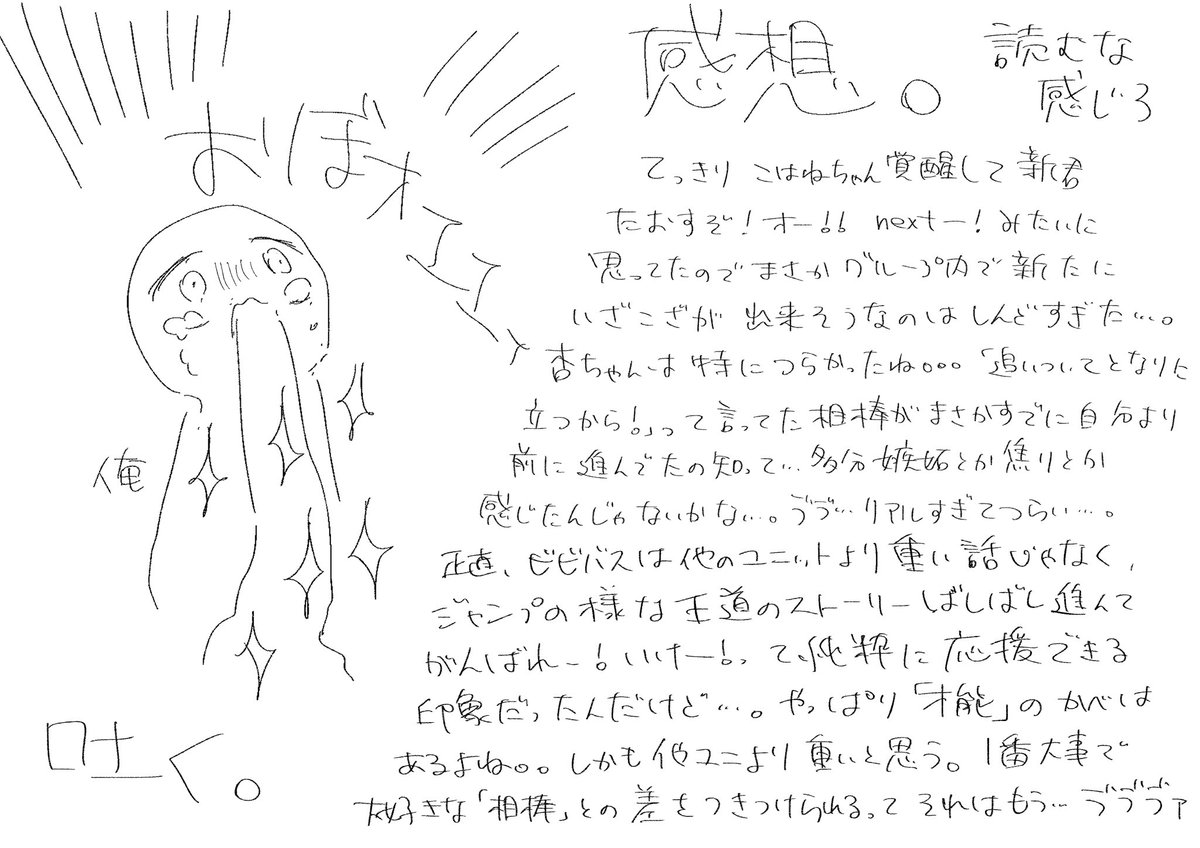 感想。
読むな
感じろ
おりぼォ
てっきり こはねちゃん覚醒して新君
たおすぞ!オー!! nextー!みたいに
思ってたのでまさかグループ内で新たに
いざこざが出来そうなのはしんどすぎた…。
杏ちゃんは特につらかったね。。。「追いついてとなりに
立つから!」って言ってた相棒がまさかすでに自分より
前に進んでたの知って…多分嫉妬とか焦りとか
感じたんじゃないかな…。ゔゔ…リアルすぎてつらい…。
正直、ビビバスは他のユニットより重い話じゃなく、
ジャンプの様な王道のストーリーばしばし進んで
がんばれー!いけー!って、純粋に応援できる
印象だったんだけど…。やっぱり「才能」のかべは
あるよね。。しかも他ユニより重いと思う。1番大事で
大好きな「相棒」との差をつきつけられるってそれはもう…ゔゔゔァ
俺
吐く。